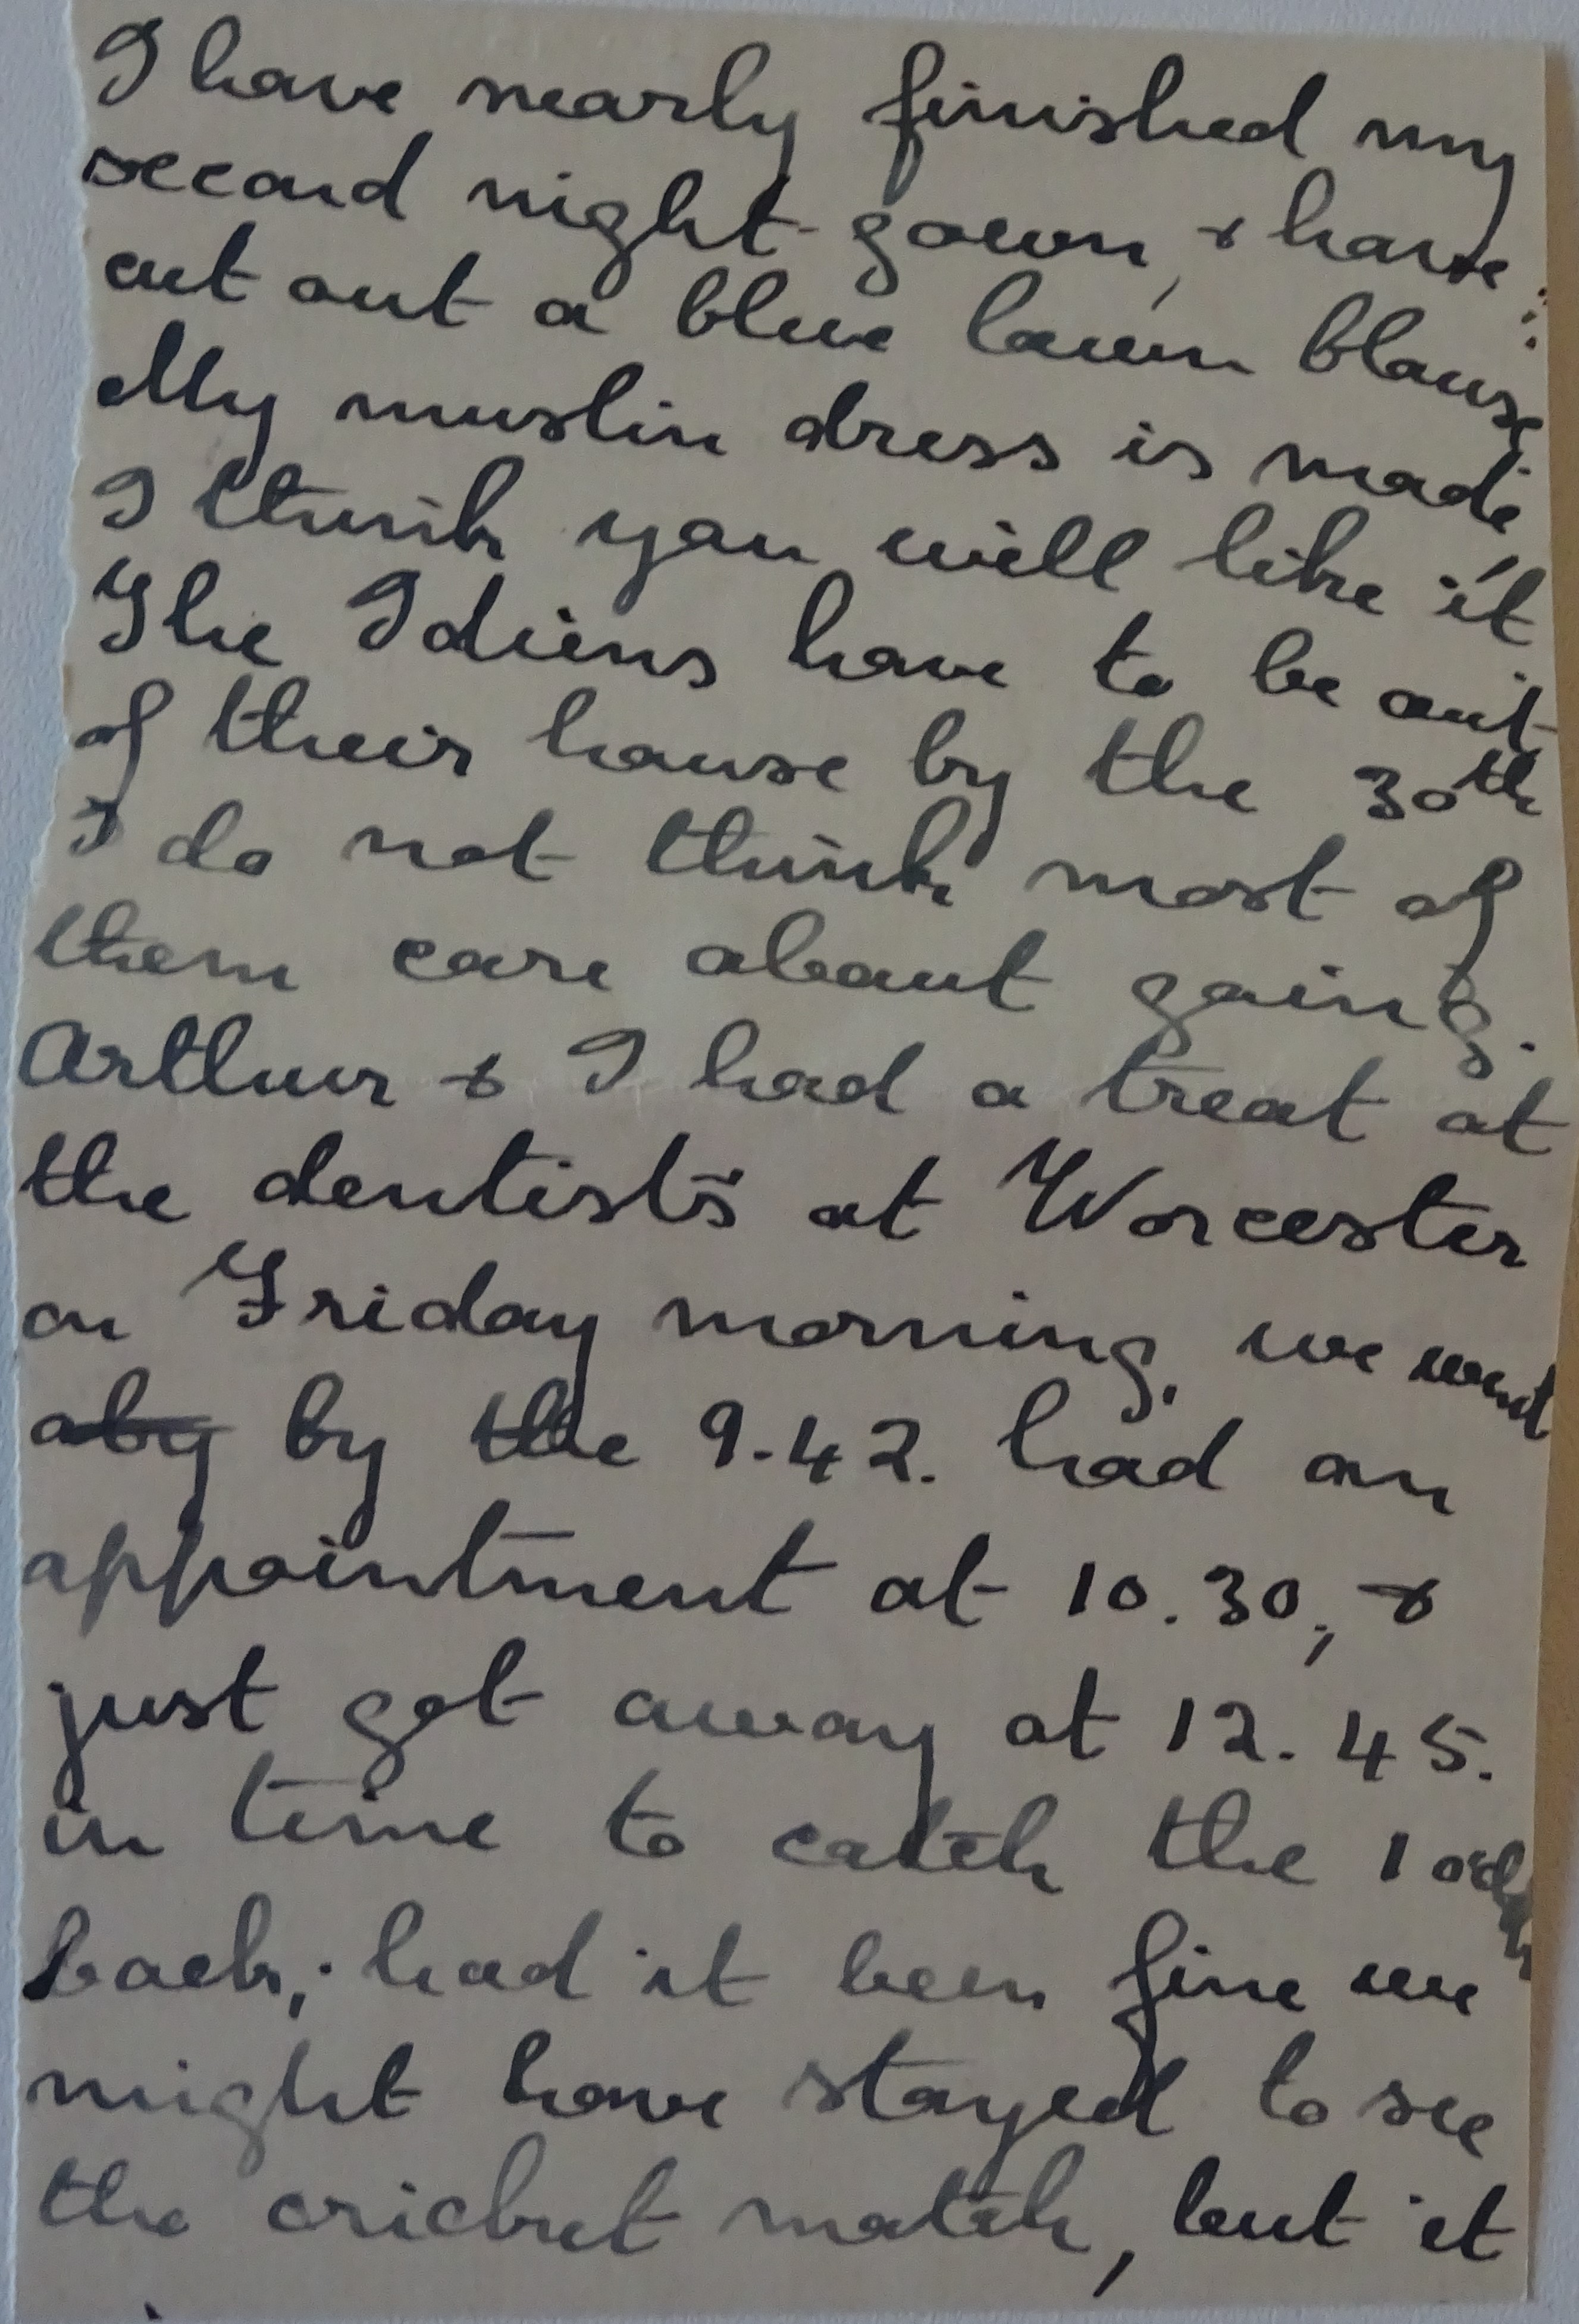 I have nearly finished my
second night-gown, & have
cut out a blue lawn blouse.
My muslin dress is made,
I think you will like it.
The Idiens have to be out
of their house by the 30th
I do not think most of
them care about going.
Arthur & I had a treat at
the dentist's at Worcester
on Friday morning, we went
by the 9.42. had an
appointment at 10.30, &
just got away at 12.45.
in time to catch the 1 o'clk
back; had it been fine we
might have stayed to see
the cricket match, but it